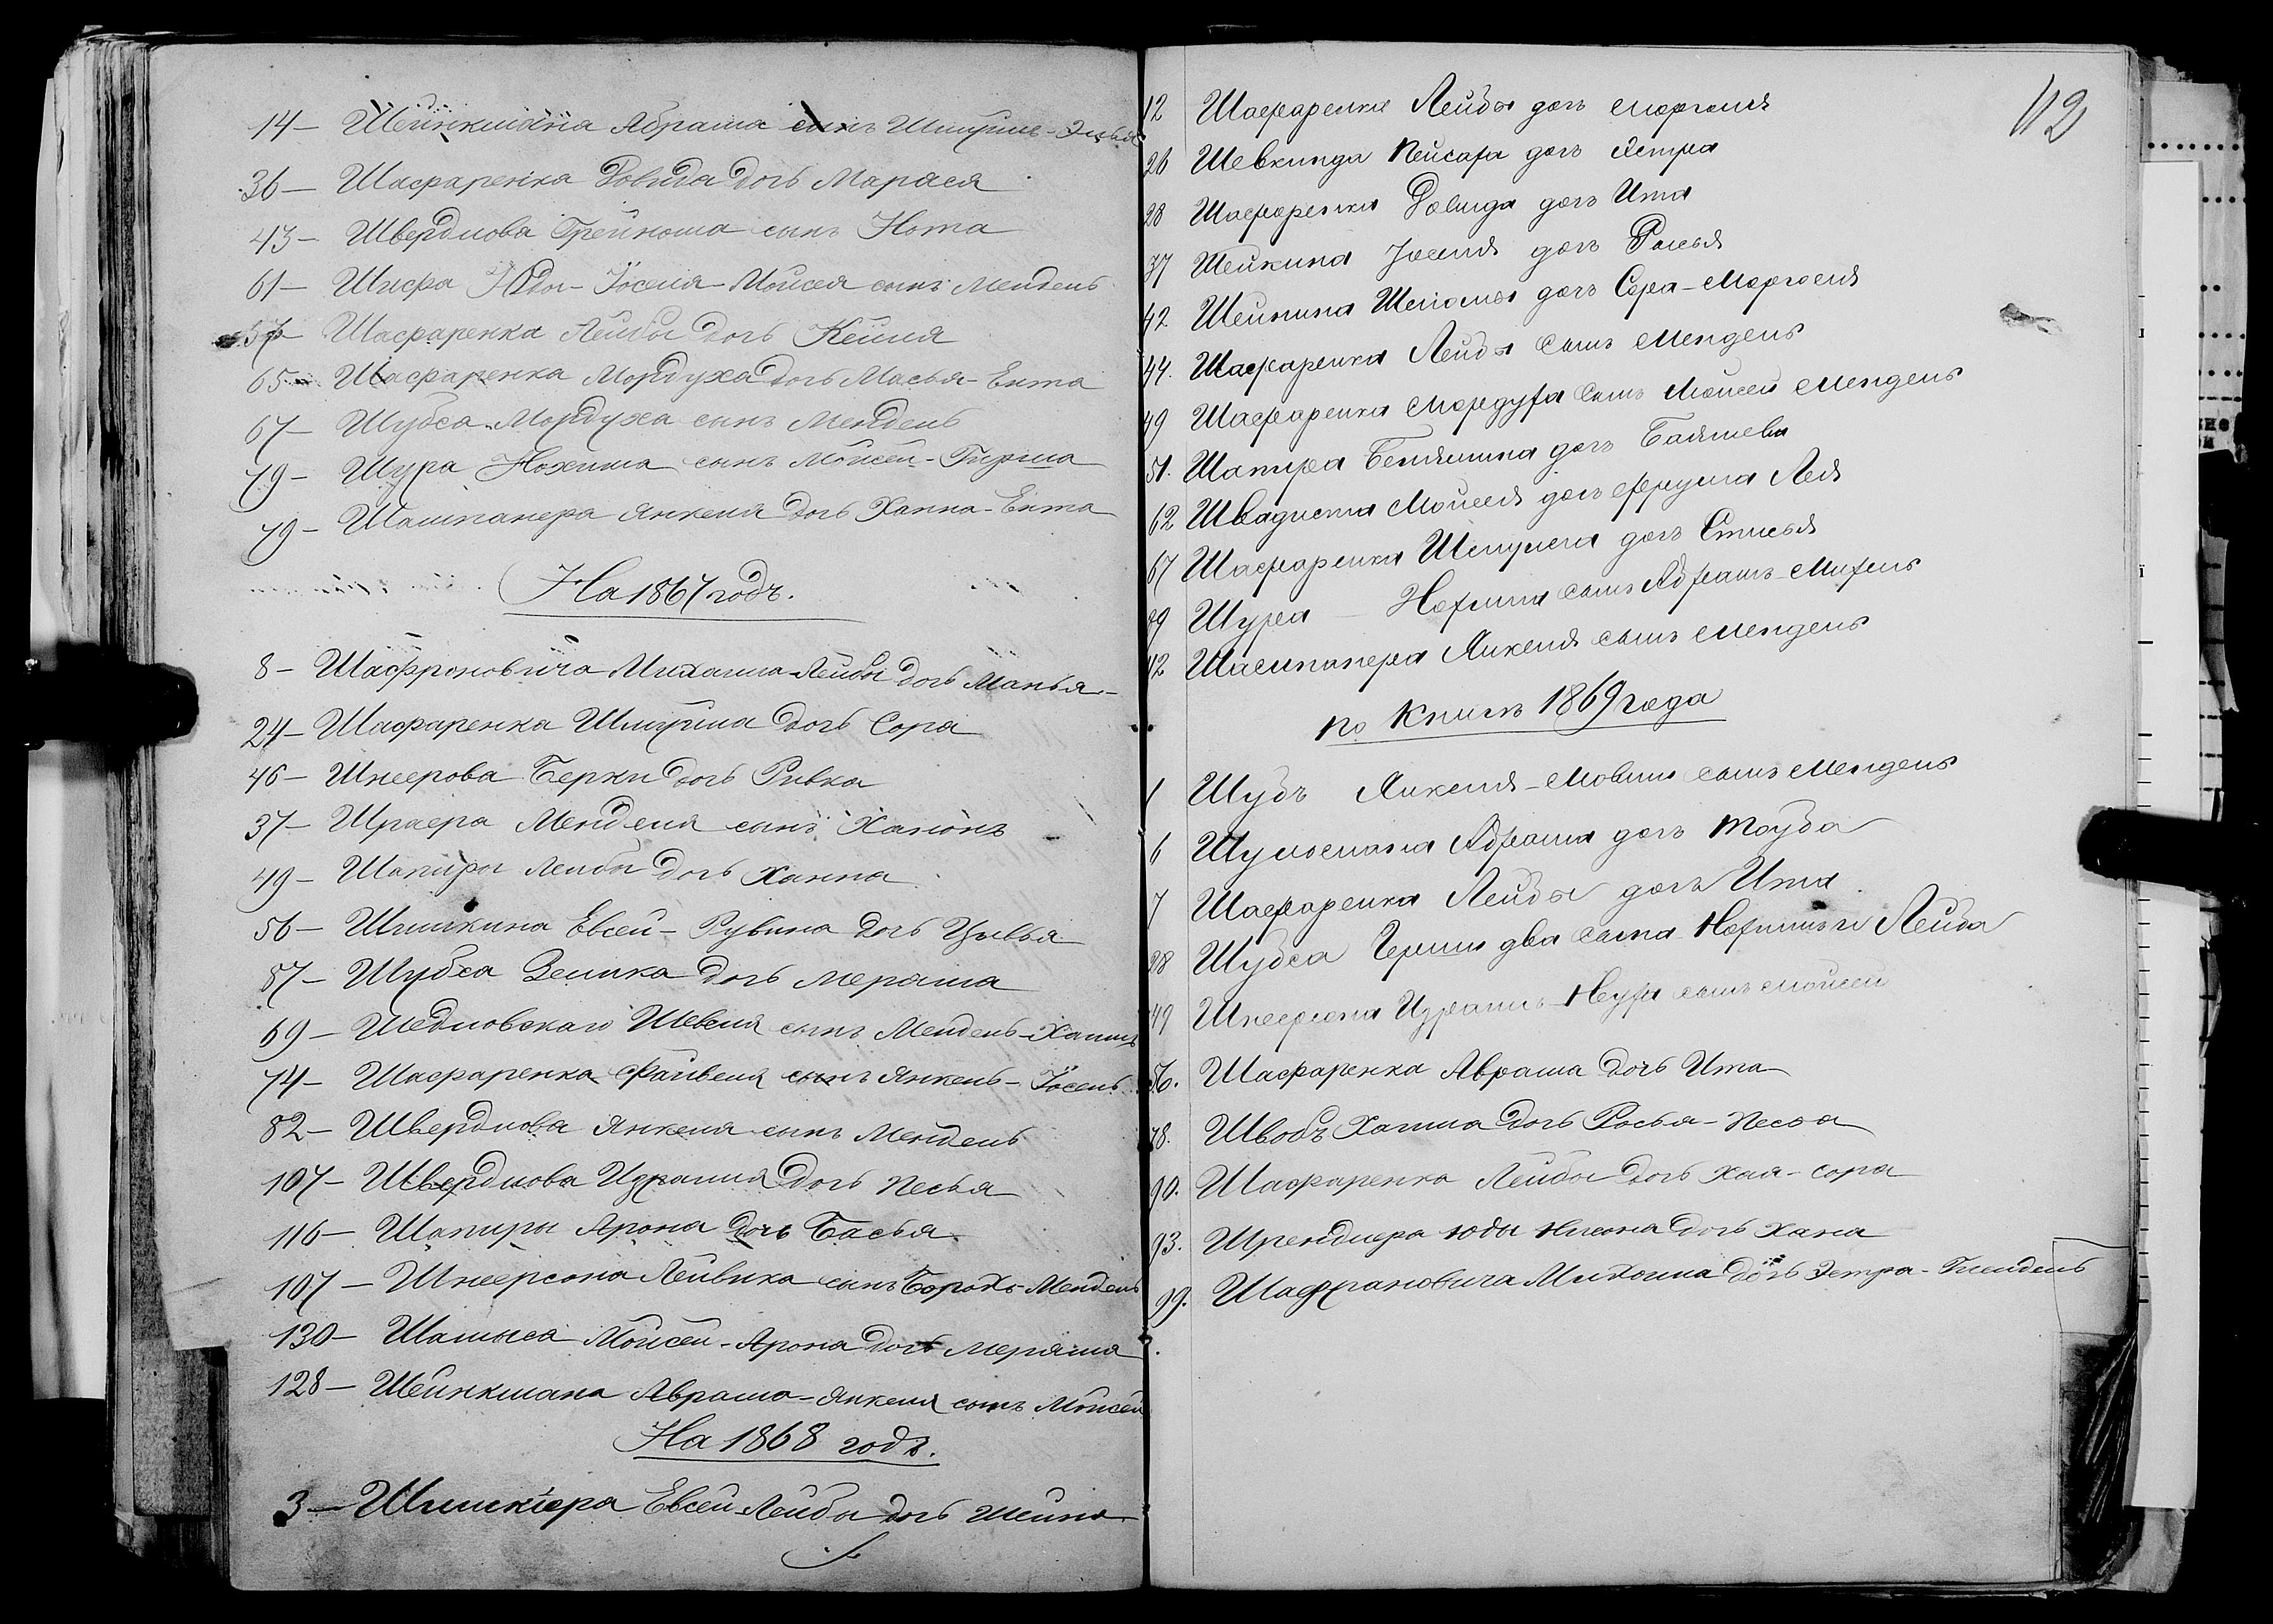 14 — Шейнкмана Абрама сынъ Шмуйле-Эля
36 — Шафаренка Довида дочь Марася
43 — Швердлова Грейнома сынъ Нота
61 — Шифра Юды-Іоселя-Мойсея сынъ Мендель
57 — Шафаренка Лейбы дочь Кейля
65 — Шафаренка Мордуха дочь Масья-Ента
67 — Шубса Мордуха сынъ Мендель
79 — Шура Нохима сынъ Мойсей-Гирша
79 — Шампанера Янкеля дочь Ханна-Ента
На 1867 годъ.
8 — Шафроновича Михаила-Лейбы дочь Манья
24 — Шафаренка Шмуйла дочь Сора
46 — Шнеерова Берки дочь Ривка
37 — Шраера Менделя сынъ Хацонъ
49 — Шапиры Лейбы дочь Ханна
56 — Шишкина Евсей-Рувина дочь Цывья
57 — Шубса Зелика дочь Мерама
69 — Шедловскаго Шевеля сынъ Мендель-Хаимъ
74 — Шафаренка Файвеля сынъ Янкель-Іосель
82 — Швердлова Янкеля сынъ Мендель
107 — Швердлова Израиля дочь Песья
116 — Шапиры Арона дочь Басья
107 — Шнеерсона Лейвика сынъ Борохъ-Мендель
130 — Шамыса Мойсей-Арона дочь Мерама
128 — Шейнкмана Аврама-Янкеля сынъ Мойсей
На 1868 годъ.
3 — Шишкіера Евсей Лейбы дочь Шейна
112
12 Шафаренки Лейбы дочь Морголя
26 Шевкинда Пейсаха дочь Эстра
28 Шафаренки Довида дочь Ита
37 Шейкина Іоселя дочь Ралья
42 Шейнина Шеломы дочь Сора-Морголя
44. Шафаренка Лейбы сынъ Мендель
49 Шафаренка Мордуха сынъ Мойсей Мендель
51. Шапира Беньямина дочь Батшева
62 Швадиста Мойсея дочь Фрума Лея
67 Шафаренка Шмуела дочь Стисья
89 Шура — Нохима сынъ Абрамъ-Михель
42 Шампанера Янкеля сынъ Мендель
по книгѣ 1869 года
1 Шубъ Янкеля-Мовши сынъ Мендель
6 Шульмана Абрама дочь Тауба
7 Шафаренка Лейбы дочь Ита
28 Шубса Герши два сына Нохимъ и Лейба
49 Шнеерсона Израиль-Нуха сынъ Мойсей
56. Шафаренка Аврама дочь Ита
78. Швобъ Хаима дочь Росья-Песья
90. Шафаренка Лейбы дочь Хая-Сора
93. Шрендлера Юды Нисона дочь Хана
99. Шафрановича Михоила дочь Эстра-Гмендель